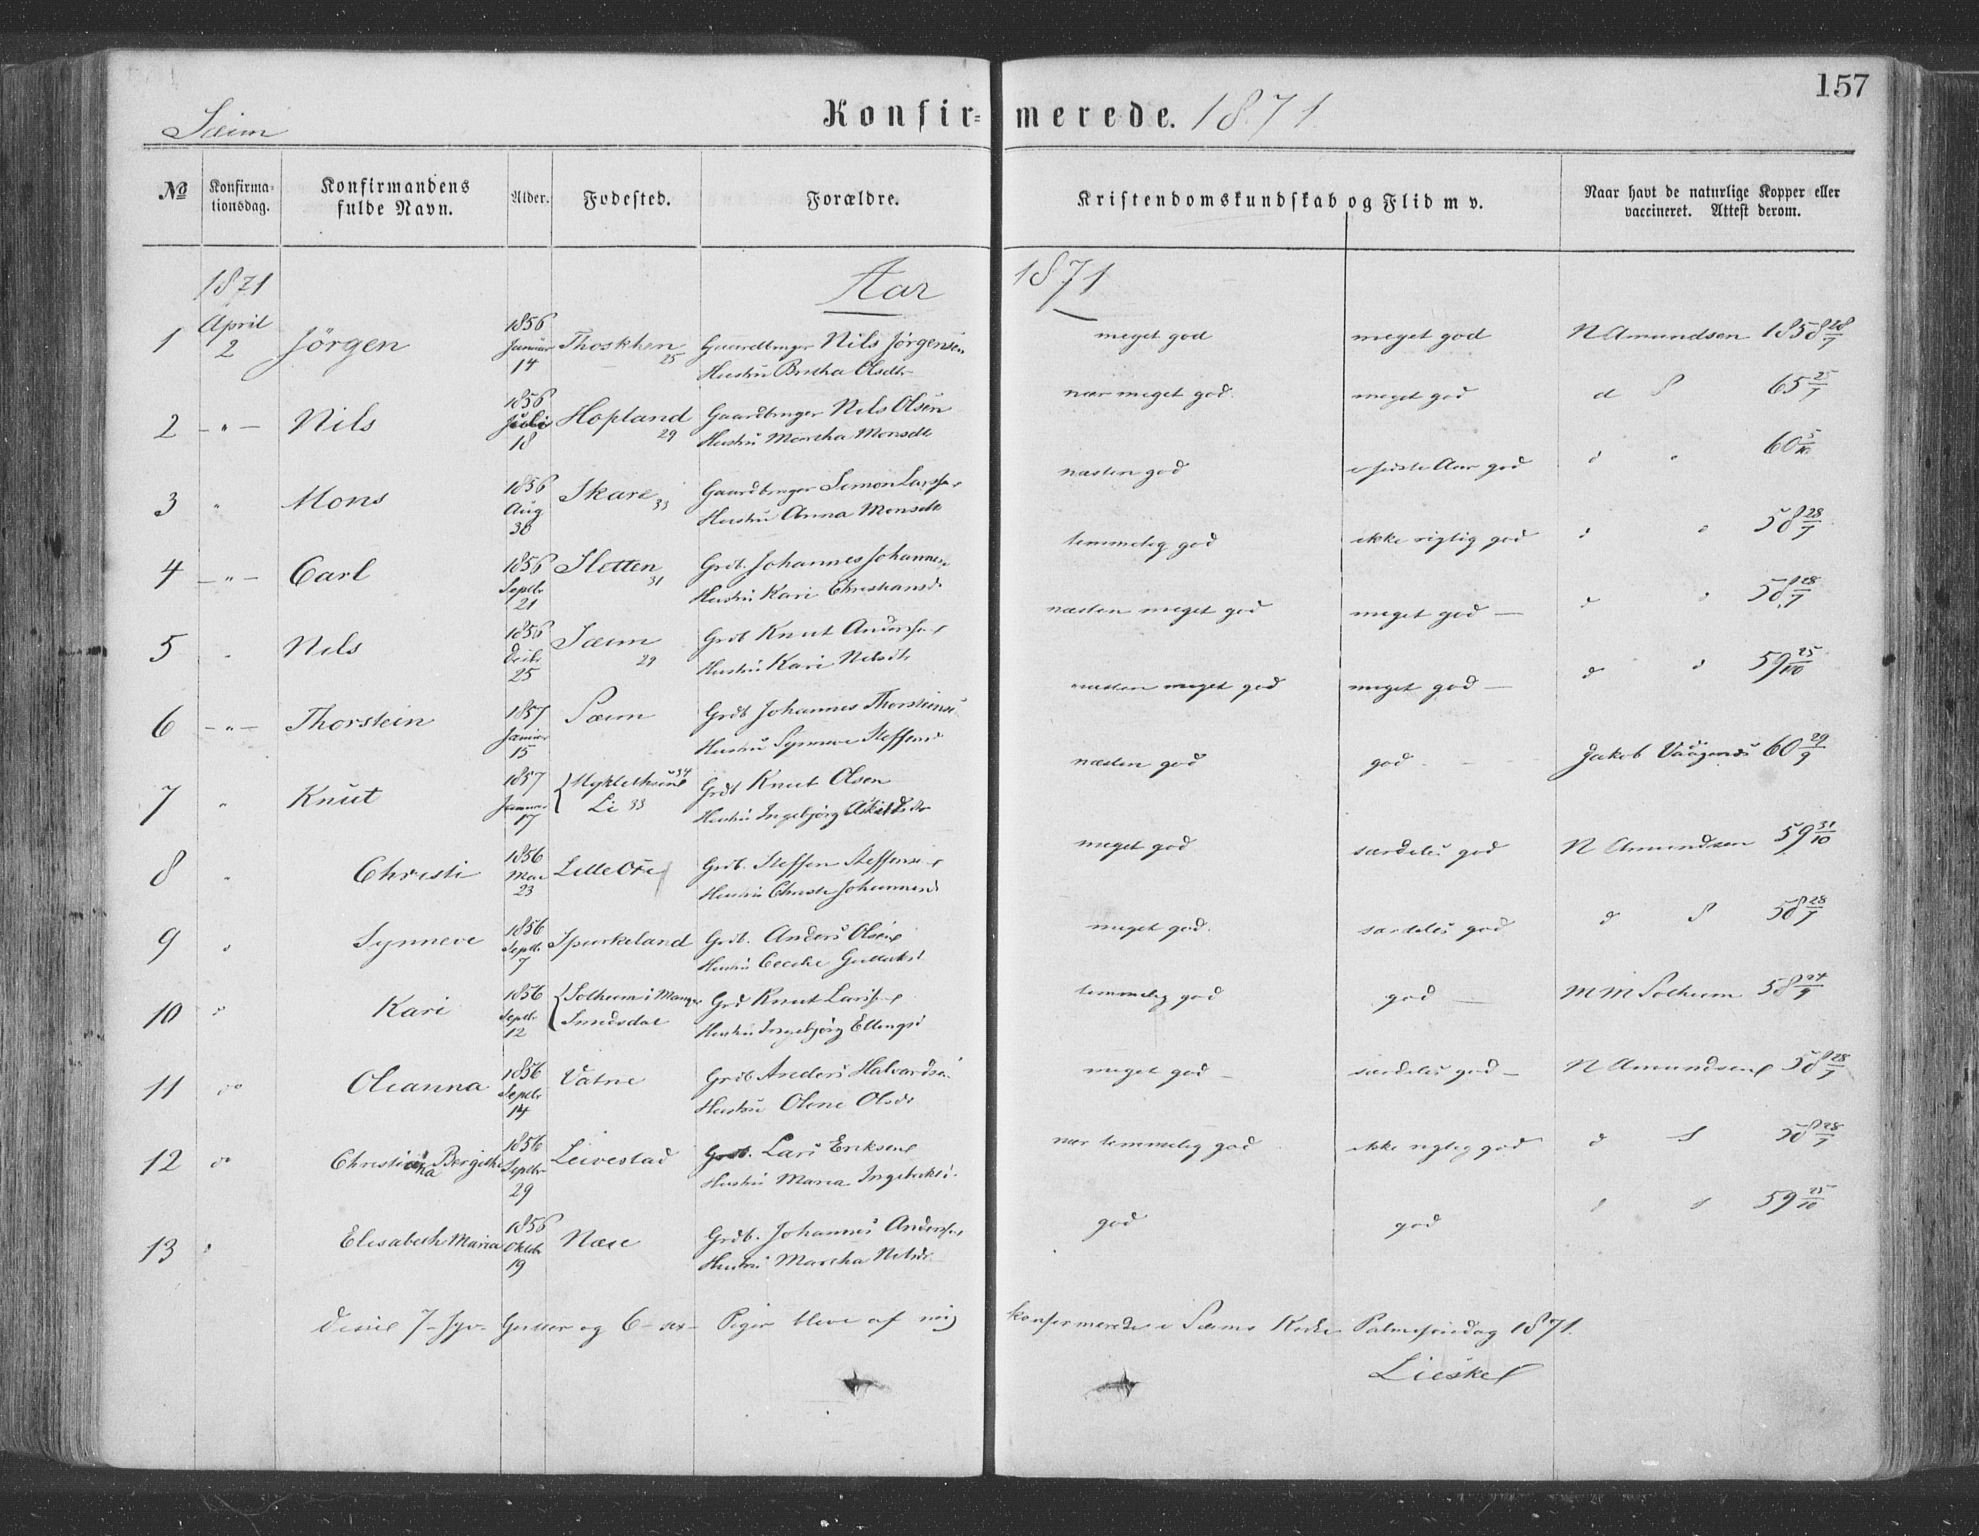 157
Sæim
Konfirmerede. 1871
No
Konfirmationsdag.
Konfirmandens fulde Navn.
Alder.
Fødested.
Forældre.
Kristendomskundskab og Flid m v.
Naar havt de naturlige Kopper eller vaccineret. Attest derom.
1871 Aar 1871
1 April 2 Jörgen 1856 Januar 14 25 Gaardbruger Nils Jörgensen meget god meget god N Amundsen 1858 28/7
Hustru Britha Olsdtr
2 - " - Nils 1856 Juli 18 Hopland 29 Gaardbruger Nils Olsen nær meget god. meget god d 65 25/7
Hustru Martha Monsdtr
3 " Mons 1856 Aug 30 Skare 33 Gaardbruger Simon Larss næsten god Aar god 60
Hustru Anna Monsdtr
4 - " - Carl 1856 Septbr 21 Sletten 31 Grdb. Johannes Johannes temmelig god ikke rigtig god 58 28/7
Hustru Kari Christiansd
5 Nils 1856 Decbr 25 Sæim 29 Grdb Knut Anders næsten meget god meget god - 58 28/7
Hustru Kari Nilsdtr
6 - " - Thorstein 1857 Januar 15 Sæim Grdb Johannes Thorsteins næsten meget god meget god - 59 25/10
Hustru Synneve Steffens
7 " Knut 1857 Januar 17 34 Li 33 Grdb Knut Olsen næsten god god Jakob 60 29/9
Hustru Ingebjörg
8 " Christi 1856 Mai 23 Lille Grdb. Steffen Steffens meget god særdeles god N Amundsen 59 31/10
Hustru Christi Johannesd
9 Synneve 1856 Septbr 7 Spurkeland Grdb. Anders Olsen meget god. særdeles god 58 28/7
Hustru Cecilie
10 Kari 1856 Septbr 12 Solheim i Manger Smedsdal Grd Knut Larss temmelig god god - M M Solheim 58 27/9
Hustru Ingebjörg Ellings
11 do Oleanna 1856 Septbr 14 Vatne Grdb Anders Halvards meget god - særdeles god - N Amundsen 58 28/7
Hustru Olene Olsdr
12 do Bergithe 1856 Septbr 29 Leivestad Grdb. Lars Eriksen nær temmelig god ikke rigtig god 58 28/7
Hustru Maria
13 Elisabeth Maria 1856 Oktbr 19 Næse Grdb. Johannes Anders god god 59 25/10
Hustru Martha Nilsdr
Disse 7 - syv - Gutter og 6 - sex - Piger bleve af mig konfirmerede i Sæims Kirke Palmesöndag 1871.